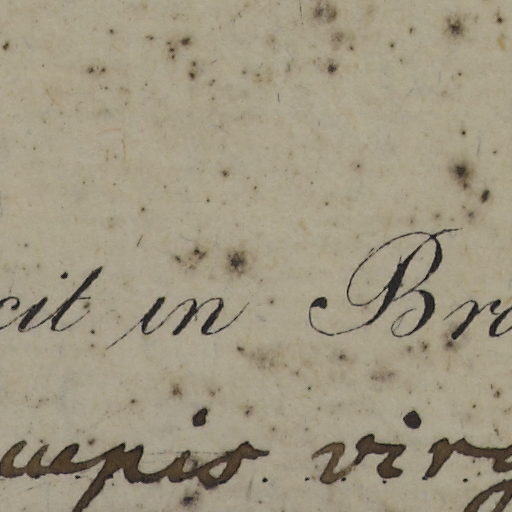 cit in Bra
uepis virg